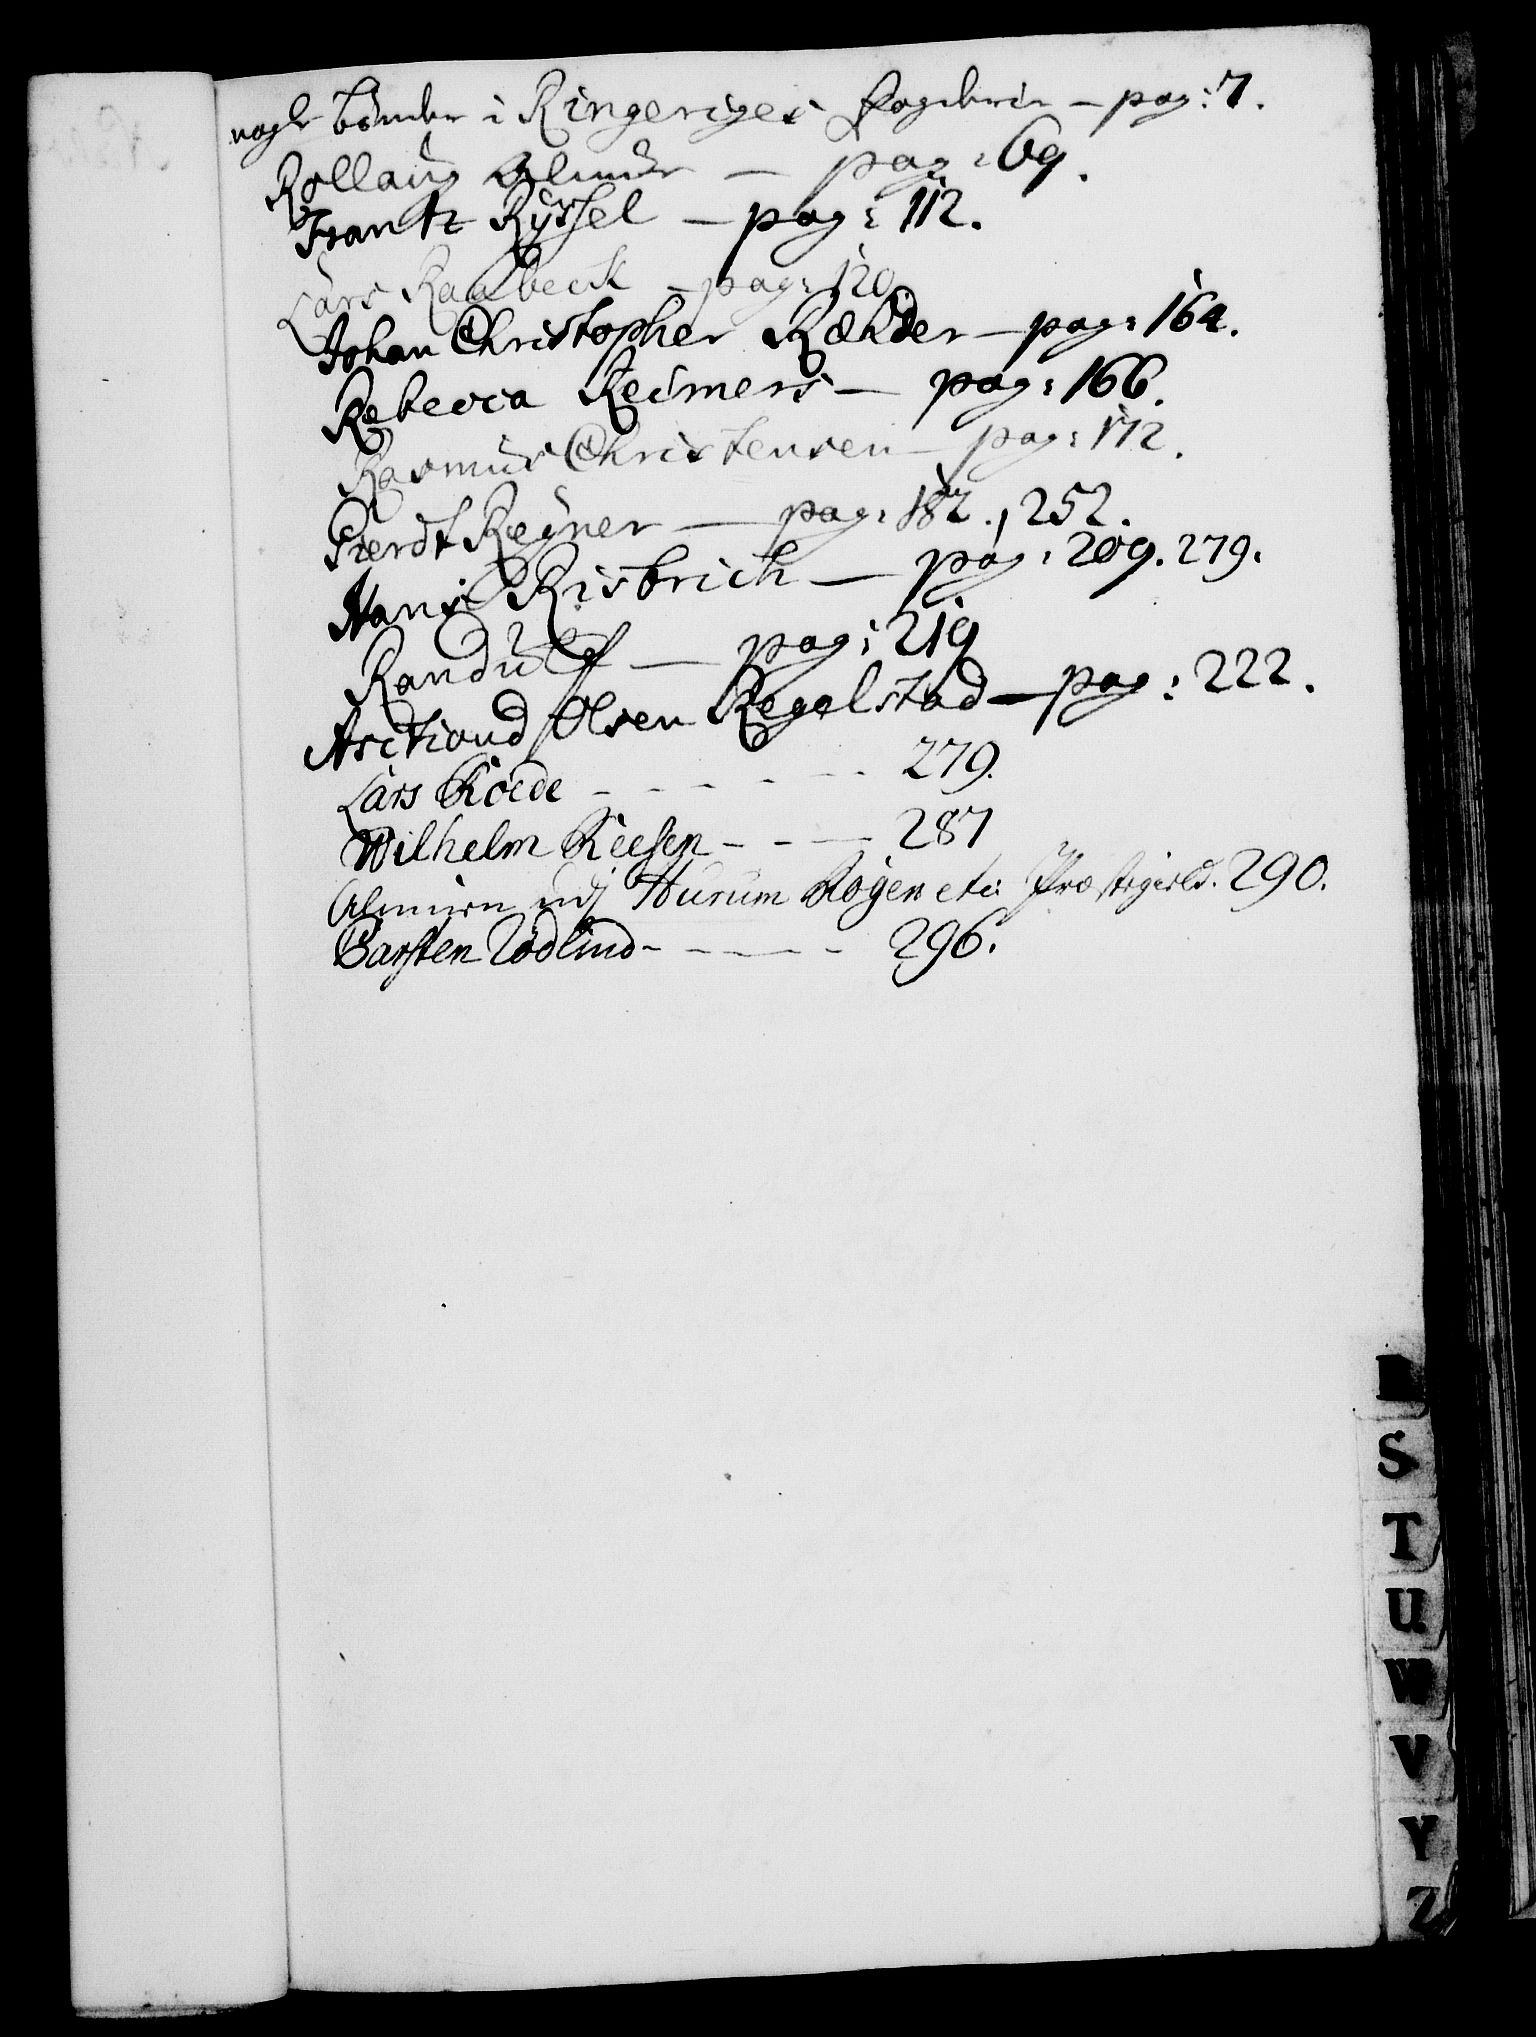 nogle bönder i Ringeriges Fogderie – pag: 7.
Rollaug Almue – pag: 69.
Frantz Ryssel – pag: 112.
Lars Raabeck – pag: 120
Johan Christopher Ræhder – pag: 164.
Rebecca Reimers – pag: 166.
Rasmus Christensen – pag: 172.
Gierdt Regner – pag: 182., 252.
Hans Risbrich – pag: 209. 279.
Randulf – pag: 219
Olsen Regelstad – pag: 222.
Lars Roede - - - - - - 279.
Wilhelm Reesen - - - - 287
Almuen udj Hurum Röyen etc: Præstegield. 290.
Carsten Rödlind - - - - - 296.
R
S
T
U
W
V
Y
Z